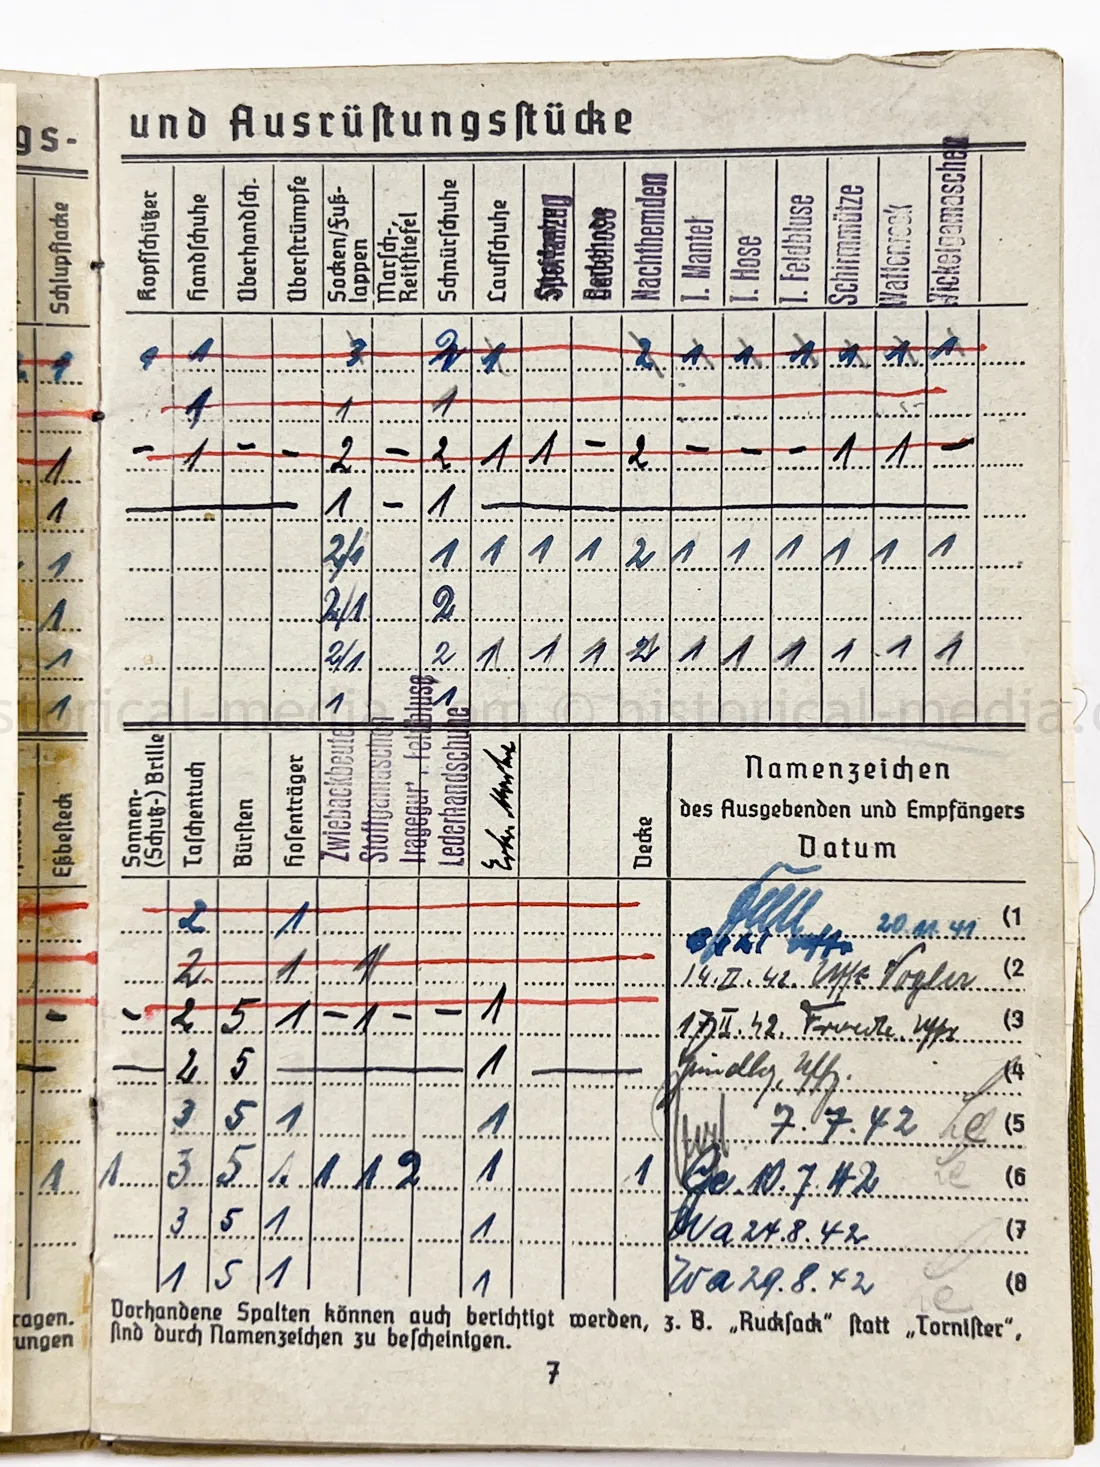 gs-
und Ausrüstungsstücke
Schlupfjacke
Kopfschützer
Handschuhe
Überhandsch.
Überstrümpfe
Socken/Fuß-
lappen
Marsch-,
Reitstiefel
Schnürschuhe
Laufschuhe
Sportanzug
Badehose
Nachthemden
T. Mantel
T. Hose
T. Feldbluse
Schirmmütze
Waffenrock
Wickelgamaschen
1 1 3 2 1 2 1 1 1 1 1 1
1 1 1
1 - 1 - - 2 - 2 1 1 - 2 - - - 1 1 -
1 1 - 1
1 2/1 1 1 1 1 2 1 1 1 1 1 1
1 2/1 2
1 2/1 2 1 1 1 2 1 1 1 1 1 1
1 1 1
historical-media.com © historical-media.c
Eßbesteck
Sonnen-
(Schutz-) Brille
Taschentuch
Bürsten
Hosenträger
Zwiebackbeutel
Stoffgamaschen
Tragegur. f. Feldbluse
Lederhandschuhe
Decke
Namenzeichen
des Ausgebenden und Empfängers
Datum
2 1 20.11.41 (1
2 1 1 14.II.42. Uffz Vogler (2
- - 2 5 1 - 1 - - 1 17.II.42. Uffz (3
2 5 1 Uffz. (4
3 5 1 1 7.7.42 Le (5
1 1 3 5 1 1 1 2 1 1 Ge 10.7.42 Le (6
3 5 1 1 Wa 24.8.42 (7
1 5 1 1 Wa 29.8.42 Le (8
ragen.
ungen
Vorhandene Spalten können auch berichtigt werden, z. B. „Rucksack“ statt „Tornister“,
sind durch Namenzeichen zu bescheinigen.
7